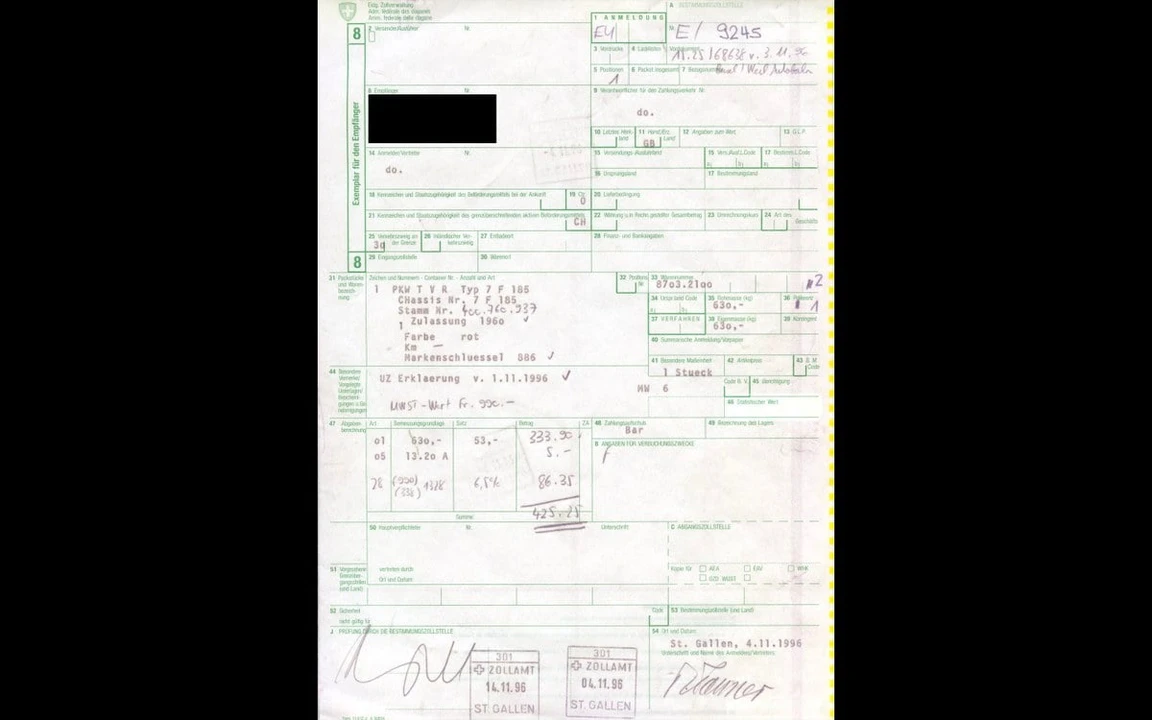 Eidg. Zollverwaltung
Adm. fédérale des douanes
Amm. federale delle dogane
A BESTIMMUNGSZOLLSTELLE
1 ANMELDUNG
EU
Nr. E/ 9245
8
2 Versender/Ausführer Nr.
3 Vordrucke 4 Ladelisten
v. 3.11.96
5 Positionen 6 Packst. insgesamt 7 Bezugsnummer
1 Basel/Weil Autobahn
8 Empfänger Nr.
9 Verantwortlicher für den Zahlungsverkehr Nr.
do.
Exemplar für den Empfänger
12 Angaben zum Wert 13 G.L.P.
GB
14 Anmelder/Vertreter Nr.
do.
15 Versendungs-/Ausfuhrland 17 Bestimm.L.Code
16 Ursprungsland 17 Bestimmungsland
18 Kennzeichen und Staatszugehörigkeit des Beförderungsmittels bei der Ankunft 19 Ctr.
0
20 Lieferbedingung
21 Kennzeichen und Staatszugehörigkeit des grenzüberschreitenden aktiven Beförderungsmittels
CH
22 Währung u. in Rechn. gestellter Gesamtbetrag 23 Umrechnungskurs 24 Art des Geschäfts
25 Verkehrszweig an der Grenze 26 Inländischer Verkehrszweig 27 Entladeort
30
28 Finanz- und Bankangaben
8
29 Eingangszollstelle 30 Warenort
31 Packstücke und Warenbezeichnung
Zeichen und Nummern - Container Nr. - Anzahl und Art
32 Positions Nr. 33 Warennummer
8703.2100
1 PKW T V R Typ 7 F 185
CHassis Nr. 7 F 185
Stamm Nr. 400.760.937
1 Zulassung 1960 ✓
Farbe rot
Km —
Markenschluessel 886 ✓
34 Urspr.land Code 35 Rohmasse (kg)
630,-
37 VERFAHREN 38 Eigenmasse (kg)
630,-
40 Summarische Anmeldung/Vorpapier
41 Besondere Maßeinheit 42 Artikelpreis 43 B.M. Code
1 Stueck
44 Besondere Vermerke/
UZ Erklaerung v. 1.11.1996 ✓
MW 6
Code B.V. 45 Berichtigung
46 Statistischer Wert
MWST-Wert Fr. 990.-
47 Abgabenberechnung
Art Bemessungsgrundlage Satz Betrag ZA
48 Zahlungsaufschub
Bar
49 Bezeichnung des Lagers
01 630,- 53,- 333.90
05 13.20 A 5.-
B ANGABEN FÜR VERBUCHUNGSZWECKE
(990)
(338) 1328 6,5% 86.35
Summe: 425.25
50 Hauptverpflichteter Nr. Unterschrift
C ABGANGSZOLLSTELLE
51 Vorgesehene Grenzübergangsstellen (und Land)
vertreten durch
Ort und Datum:
Kopie für
52 Sicherheit
nicht gültig für
Code 53 Bestimmungszollstelle (und Land)
J PRÜFUNG DURCH DIE BESTIMMUNGSZOLLSTELLE
54 Ort und Datum:
St. Gallen, 4.11.1996
Unterschrift und Name des Anmelders/Vertreters:
301
ZOLLAMT
14.11.96
ST. GALLEN
301
ZOLLAMT
04.11.96
ST. GALLEN